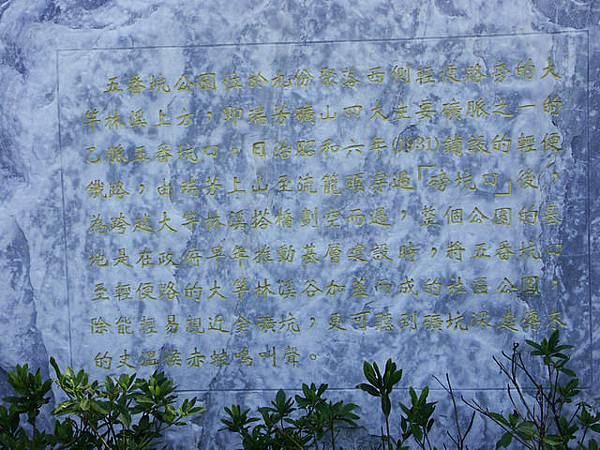 五番坑公園位於九份聚落西側輕便路旁的大
竿林溪上方，即瑞芳礦山四大主要礦脈之一的
乙脈五番坑口。日治昭和六年(1931)舖設的輕便
鐵路，由瑞芳上山至流籠頭穿過「磅坑口」後，
為跨越大竿林溪搭橋劃空而過，整個公園的基
地是在政府早年推動基層建設時，將五番坑口
至輕便路的大竿林溪谷加蓋而成的社區公園，
除能輕易親近金礦坑，更可聽到礦坑深處
的 赤蛙鳴叫聲。